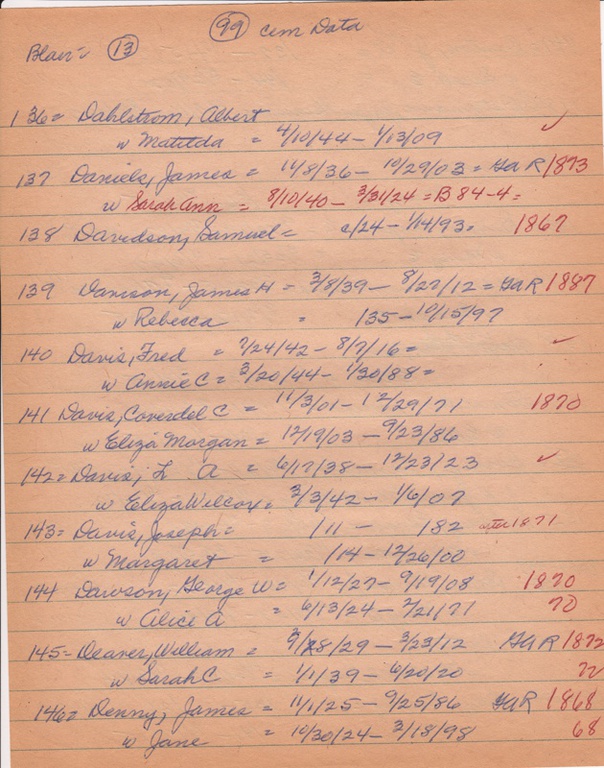 99 cem Data
Blair = 13
136 = Dahlstrom, Albert
w Matilda = 4/10/44 - 1/13/09 ✓
137 Daniels, James = 11/8/36 - 10/29/03 = GaR 1873
w Sarah Ann = 8/10/40 - 3/31/24 = B 84-4 =
138 Davidson, Samuel = c/24 - 1/14/93 = 1867
139 Davison, James H = 3/8/39 - 8/27/12 = GaR 1887
w Rebecca = 135 - 10/15/97
140 Davis, Fred = 7/24/42 - 8/7/16 = ✓
w Annie C = 3/20/44 - 1/30/88 =
141 Davis, Coverdel C = 11/3/01 - 12/29/71 1870
w Eliza Morgan = 12/19/03 - 9/23/86
142 = Davis, L A = 6/17/38 - 12/23/23 ✓
w Eliza Wilcox = 3/3/42 - 1/6/07
143 = Davis, Joseph = /11 - 182 after 1871
w Margaret = /14 - 12/26/00
144 Dawson, George W = 1/12/27 - 9/19/08 1870
w Alice A = 6/13/24 - 2/21/71 70
145 = Deaver, William = 9/28/29 - 3/23/12 GaR 1872
w Sarah C = 1/1/39 - 6/20/20 72
146 = Denny, James = 11/1/25 - 9/25/86 GaR 1868
w Jane 10/30/24 - 3/18/98 68